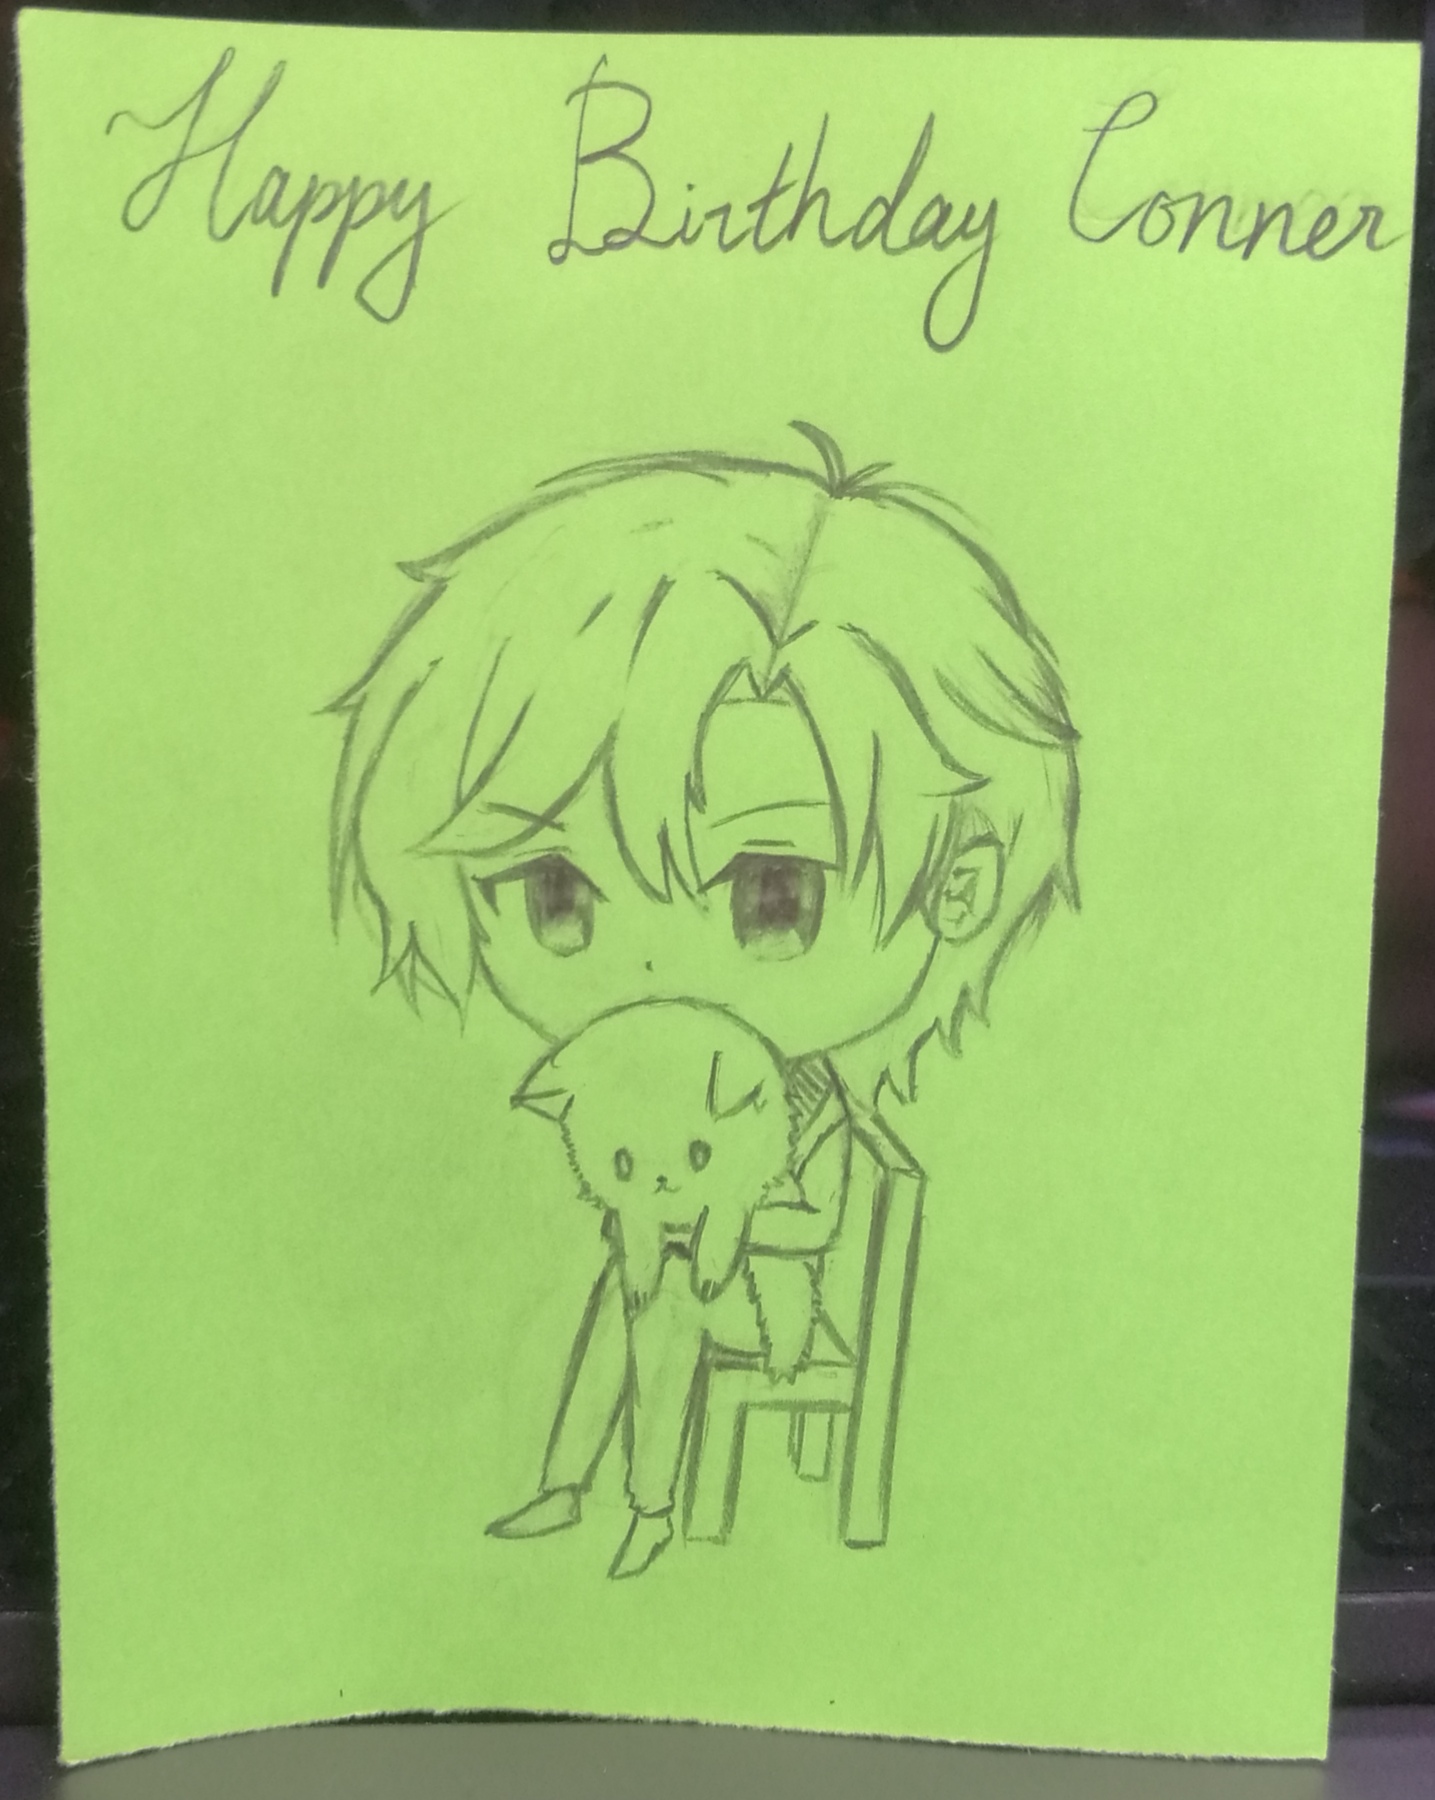 Happy Birthday Conner